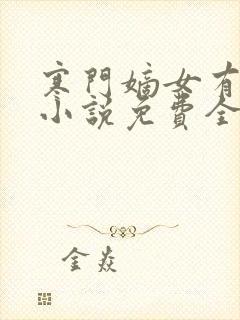 寒門嫡女有
小說免費全
金焱